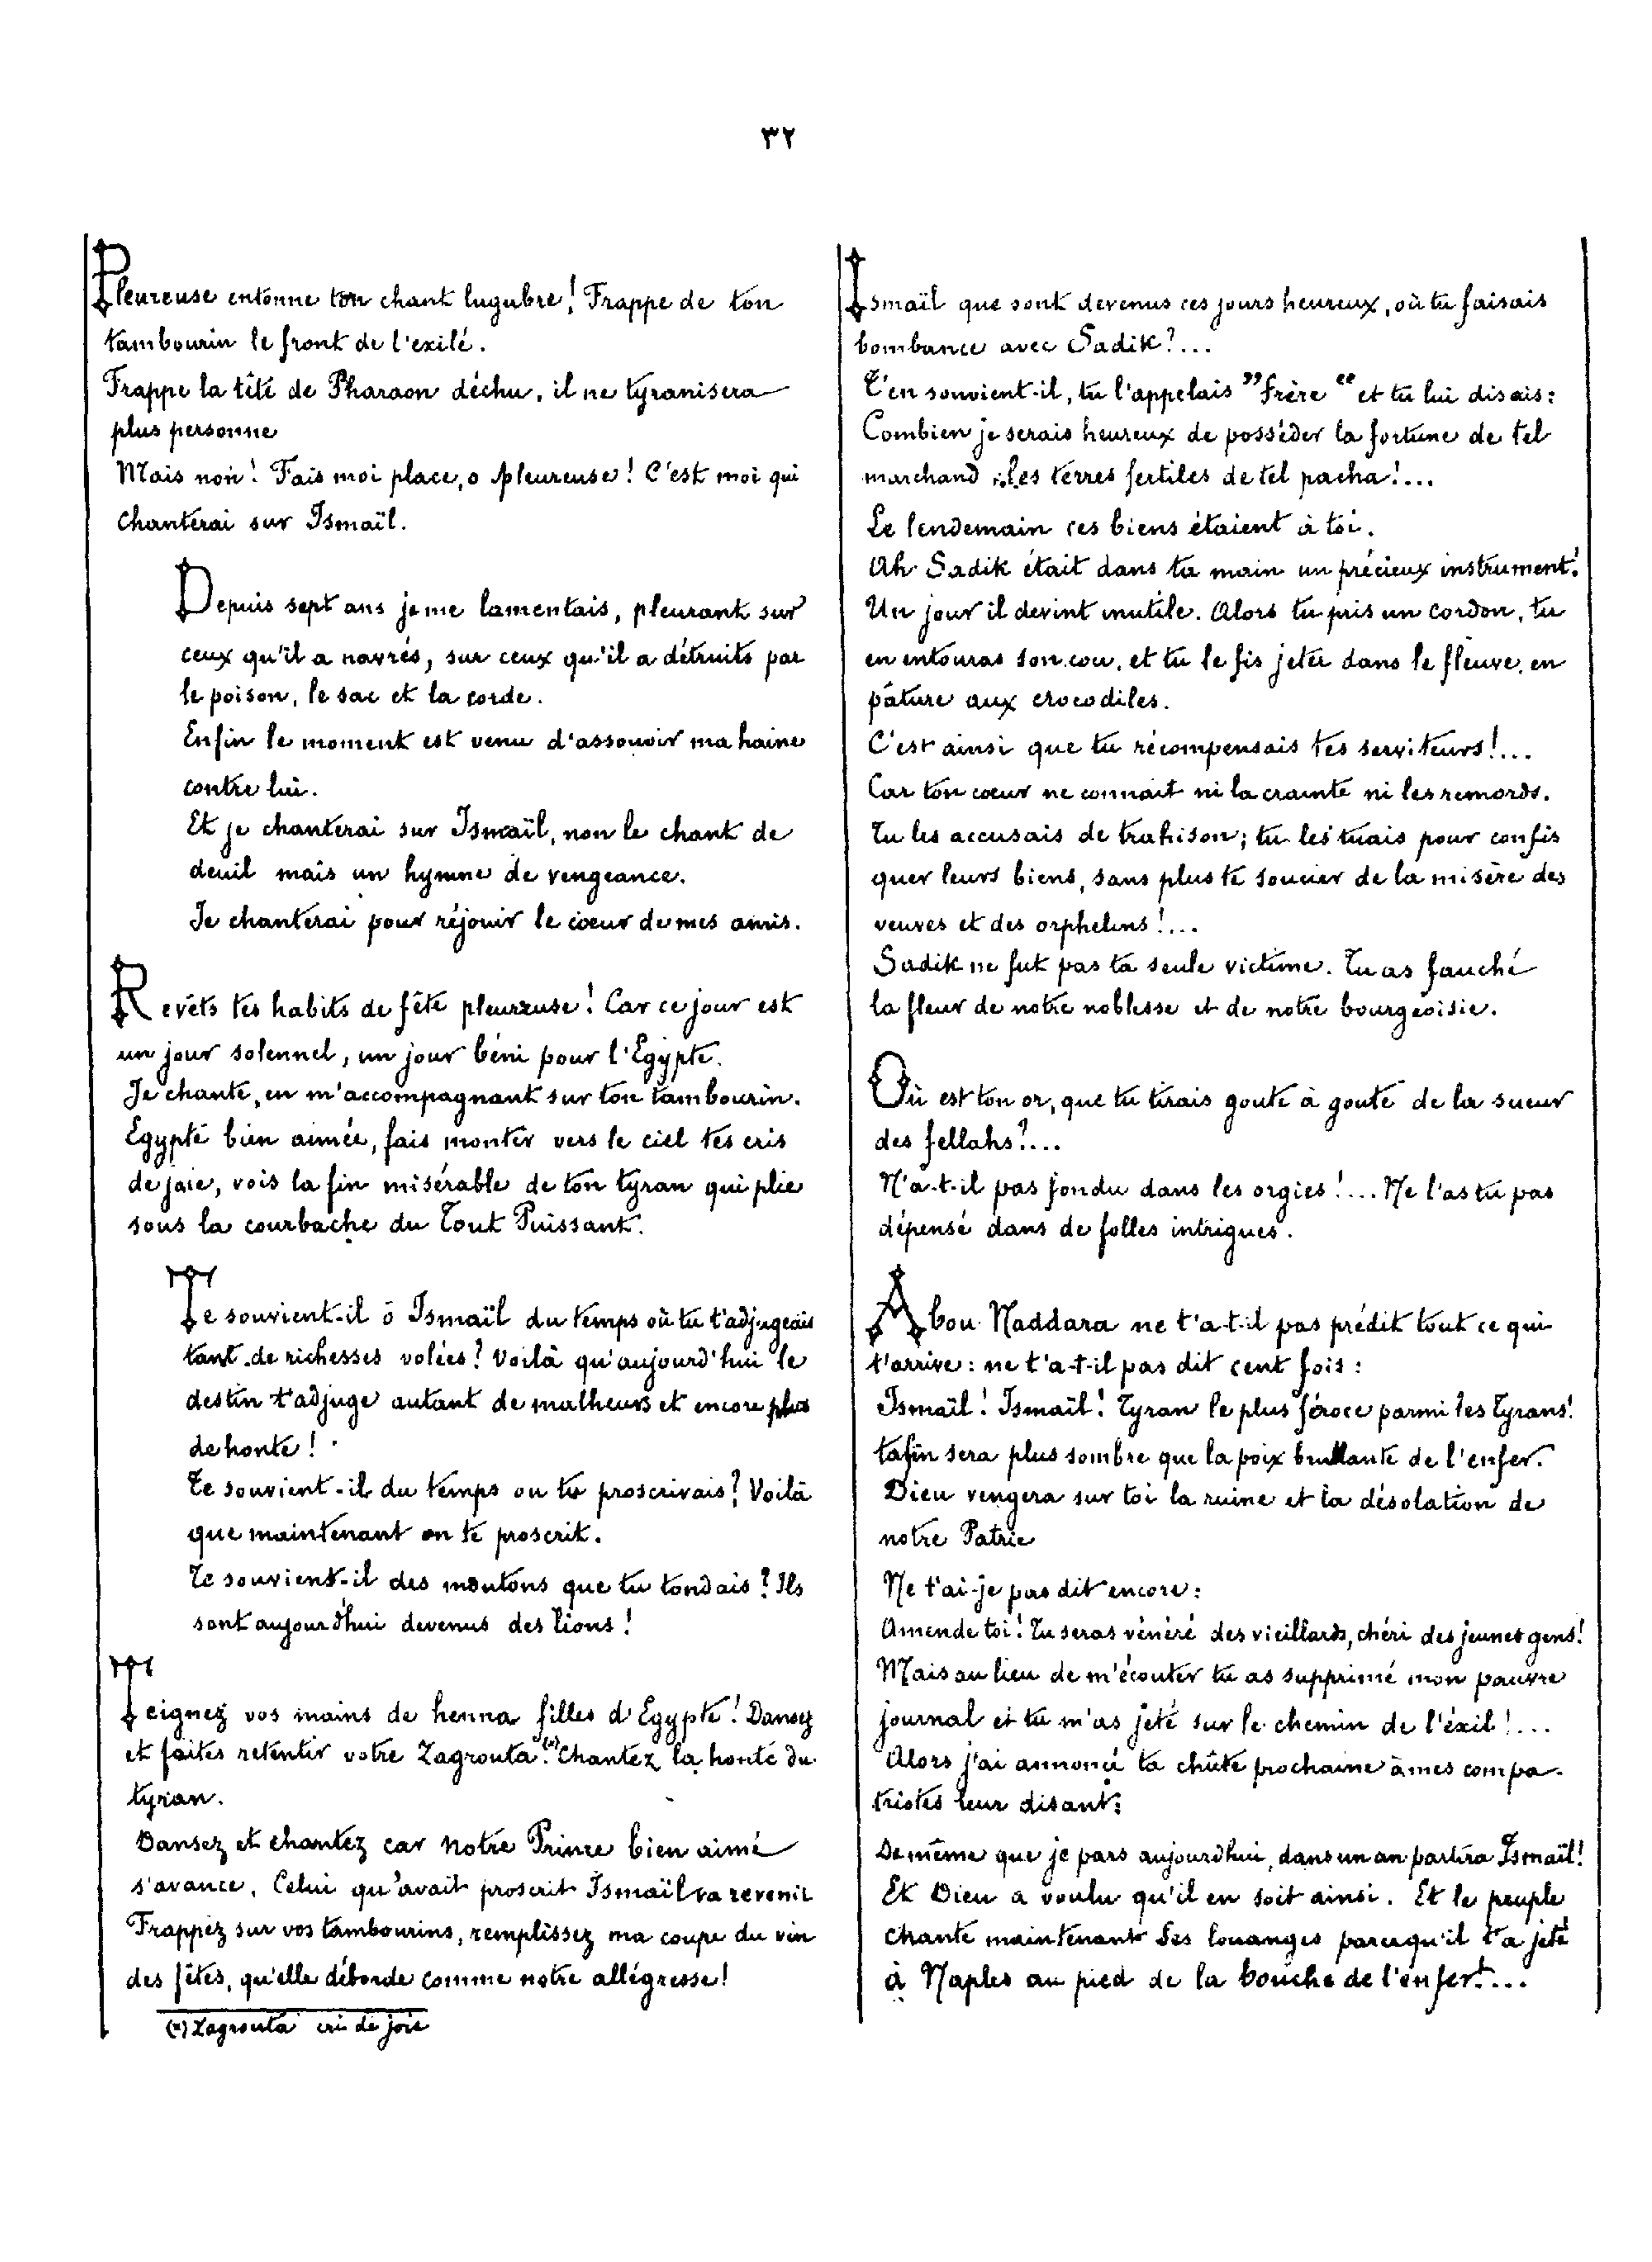 ٣٢
Pleureuse entonne ton chant lugubre! Frappe de ton
tambourin le front de l'exilé.
Frappe la tête de Pharaon déchu, il ne tyranisera
plus personne
Mais non! Fais moi place, o pleureuse! C'est moi qui
chanterai sur Ismaïl.
Depuis sept ans je me lamentais, pleurant sur
ceux qu'il a navrés, sur ceux qu'il a détruits par
le poison, le sac et la corde.
Enfin le moment est venu d'assouvir ma haine
contre lui.
Et je chanterai sur Ismaïl, non le chant de
deuil mais un hymne de vengeance.
Je chanterai pour réjouir le cœur de mes amis.
Revêts tes habits de fête pleureuse! Car ce jour est
un jour solennel, un jour béni pour l'Egypte.
Je chante, en m'accompagnant sur ton tambourin.
Egypte bien aimée, fais monter vers le ciel tes cris
de joie, vois la fin misérable de ton tyran qui plie
sous la courbache du Tout Puissant.
Te souvient-il ô Ismaïl du temps où tu t'adjugeais
tant de richesses volées? Voilà qu'aujourd'hui le
destin t'adjuge autant de malheurs et encore plus
de honte!
Te souvient-il du temps ou tu proscrivais? Voilà
que maintenant on te proscrit.
Te souvient-il des moutons que tu tondais? Ils
sont aujourd'hui devenus des lions!
Teignez vos mains de henna filles d'Egypte! Dansez
et faites retentir votre Zagrouta.(*) Chantez la honte du
tyran.
Dansez et chantez car notre Prince bien aimé
s'avance. Celui qu'avait proscrit Ismaïl va revenir
Frappez sur vos tambourins, remplissez ma coupe du vin
des fêtes, qu'elle déborde comme notre allégresse!
(*) Zagrouta cri de joie
Ismaïl que sont devenus ces jours heureux, où tu faisais
bombance avec Sadik?...
T'en souvient-il, tu l'appelais "frère" et tu lui disais:
Combien je serais heureux de posséder la fortune de tel
marchand, les terres fertiles de tel pacha!...
Le lendemain ces biens étaient à toi.
Ah Sadik était dans ta main un précieux instrument!
Un jour il devint inutile. Alors tu pris un cordon, tu
en entouras son cou, et tu le fis jeter dans le fleuve, en
pâture aux crocodiles.
C'est ainsi que tu récompensais tes serviteurs!...
Car ton cœur ne connait ni la crainte ni les remords.
Tu les accusais de trahison; tu les tuais pour confis
quer leurs biens, sans plus te soucier de la misère des
veuves et des orphelins!...
Sadik ne fut pas ta seule victime. Tu as fauché
la fleur de notre noblesse et de notre bourgeoisie.
Où est ton or, que tu tirais goute à goute de la sueur
des fellahs?...
N'a-t-il pas fondu dans les orgies!... Ne l'as tu pas
dépensé dans de folles intrigues.
Abou Naddara ne t'a-t-il pas prédit tout ce qui
t'arrive: ne t'a-t-il pas dit cent fois:
Ismaïl! Ismaïl! Tyran le plus féroce parmi les Tyrans!
ta fin sera plus sombre que la poix brullante de l'enfer.
Dieu vengera sur toi la ruine et la désolation de
notre Patrie
Ne t'ai-je pas dit encore:
Amende toi! Tu seras vénéré des vieillards, chéri des jeunes gens!
Mais au lieu de m'écouter tu as supprimé mon pauvre
journal et tu m'as jeté sur le chemin de l'éxil!...
Alors j'ai annoncé ta chûte prochaine à mes compa-
triotes leur disant:
De même que je pars aujourd'hui, dans un an partira Ismaïl!
Et Dieu a voulu qu'il en soit ainsi. Et le peuple
chante maintenant Ses louanges parcequ'il t'a jeté
à Naples au pied de la bouche de l'enfer!...